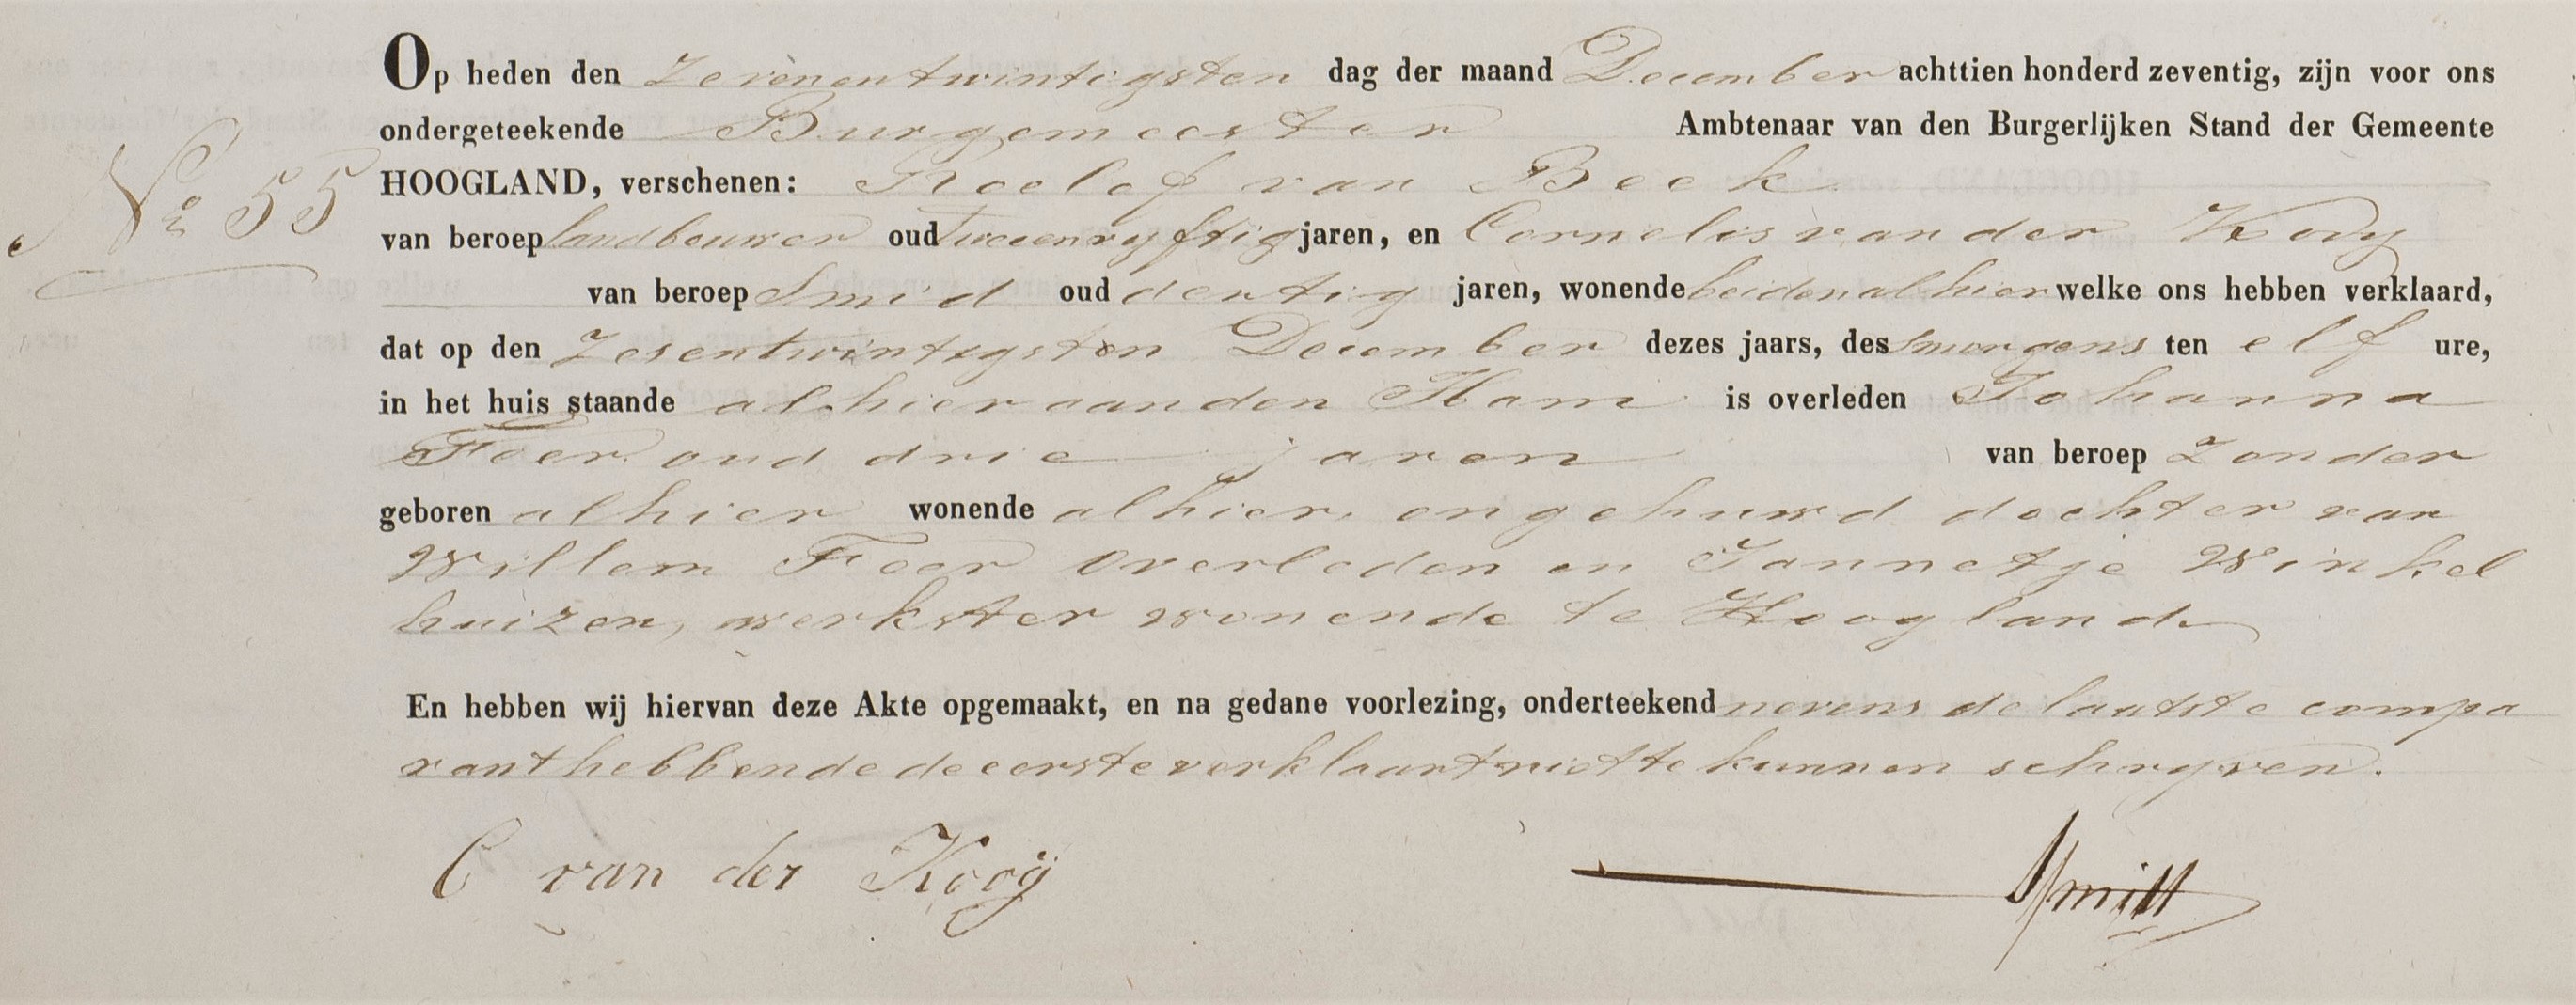 Op heden den zevenentwintigsten dag der maand December achttien honderd zeventig, zijn voor ons
ondergeteekende Burgemeester Ambtenaar van den Burgerlijken Stand der Gemeente
No 55 HOOGLAND, verschenen: Roelof van Beek
van beroep landbouwer oud tweeenvyftig jaren, en Cornelis van der Kooy
van beroep Smid oud dertig jaren, wonende beiden alhier welke ons hebben verklaard,
dat op den Zesentwintigsten December dezes jaars, des smorgens ten elf ure,
in het huis staande alhier aan den Ham is overleden Johanna
Foer oud drie jaren van beroep zonder
geboren alhier wonende alhier, ongehuwd dochter van
Willem Foer overleden en Jannetje Winkel
huizen, werkster wonende te Hoogland
En hebben wij hiervan deze Akte opgemaakt, en na gedane voorlezing, onderteekend nevens de laatste compa
rant hebbende de eerste verklaart niet te kunnen schryven.
C van der Kooij Smitt